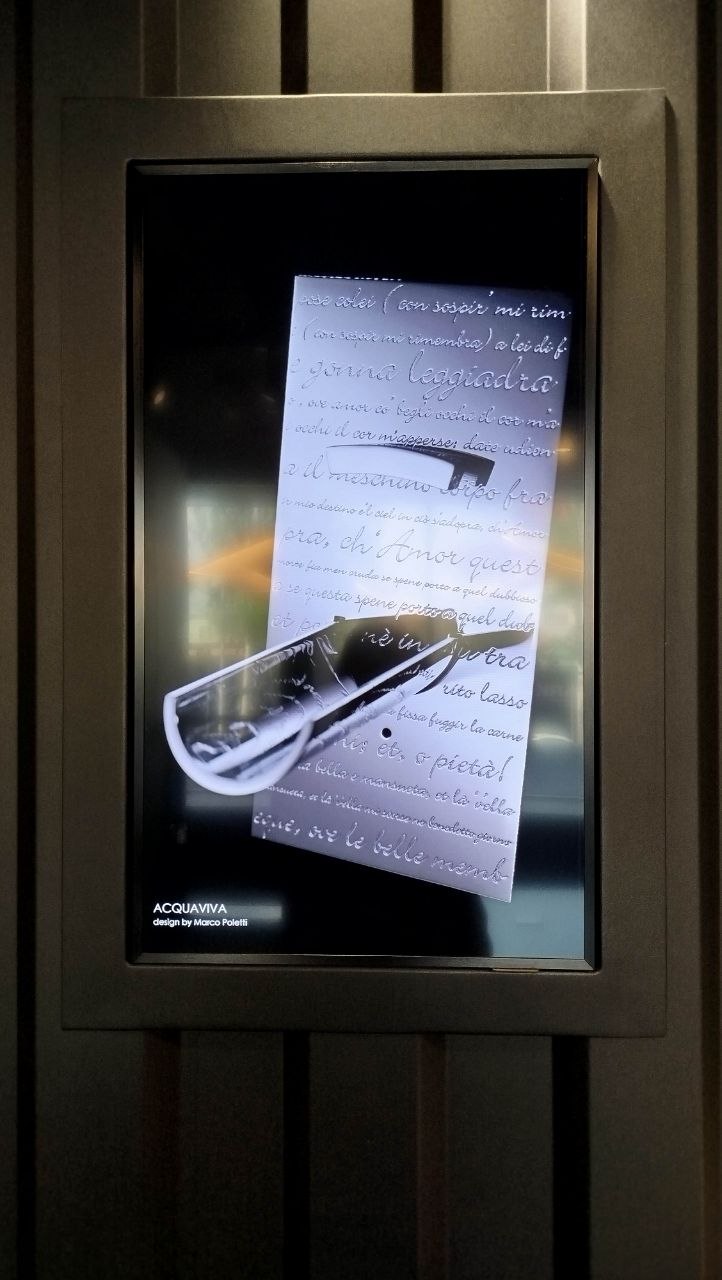 colei (con sospir' mi rim
(con sospir mi rimembra) a lei di f
e gonna leggiadra
, ove amor co' begli occhi il cor m'a
occhi il cor m'apperse: date udien
a il meschino corpo fra
mio destino è'l ciel in ciò s'adopra, ch'Amor
pra, ch'Amor quest
morte fia men cruda se spene porto a quel dubbioso
a se questa spene porto a quel dubb
et nè in tra
rito lasso
fissa fuggir la carne
et, o pietà!
la bella e mansueta, et là 'v'ella
mansueta, et là 'v'ella mi scorse nel benedetto giorno
cque, ove le belle memb
ACQUAVIVA
design by Marco Poletti